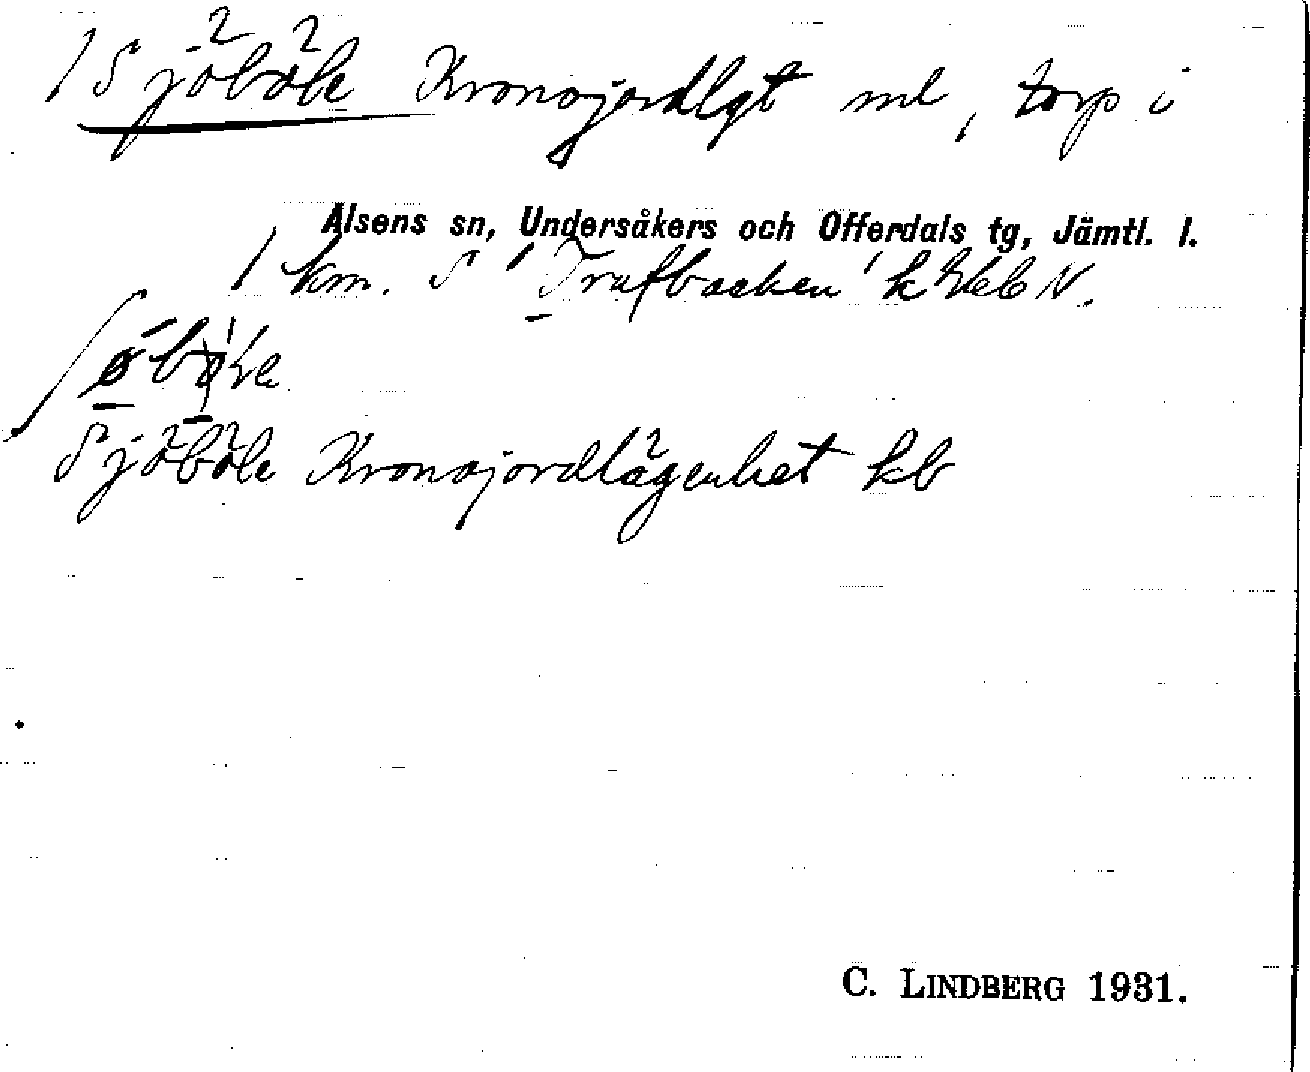 Sjöböle Kronojordlgt ml, torp i
Alsens sn, Undersåkers och Offerdals tg, Jämtl. l.
1 km. S Trafbacken k
Sjöböle Kronojordlägenhet kb
C. LINDBERG 1931.